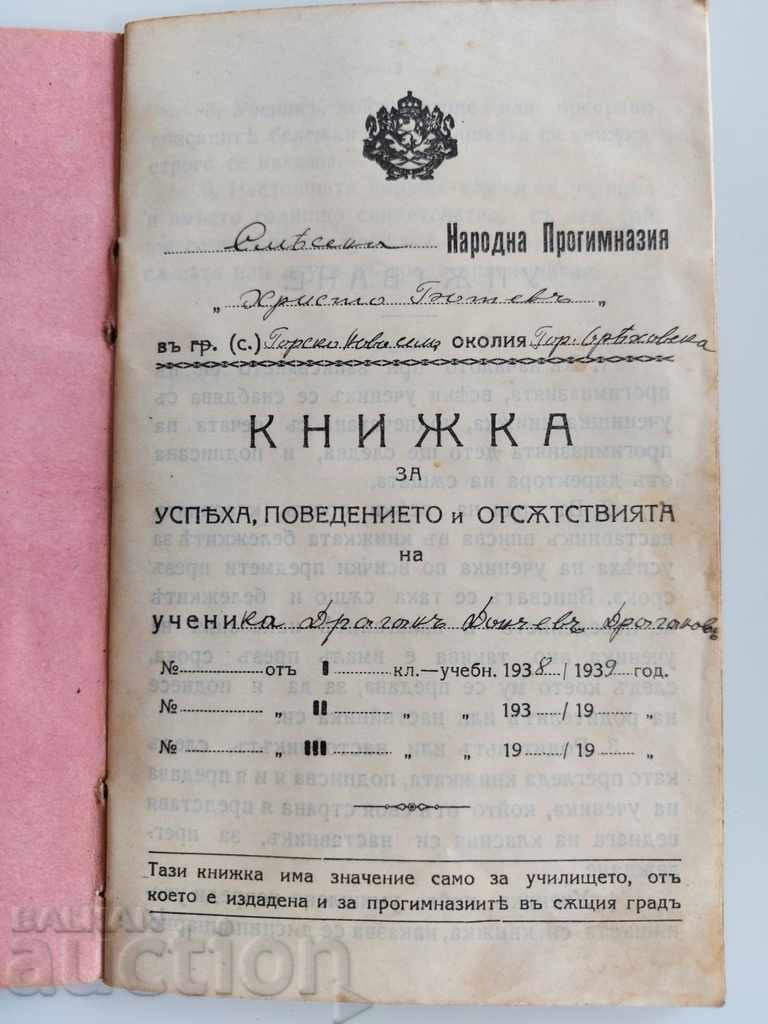 Смѣсена Народна Прогимназия
„ Христо Ботевъ „
въ гр. (с.) Горско Ново село околия Гор. Орѣховска
КНИЖКА
ЗА
УСПѢХА, ПОВЕДЕНИЕТО и ОТСѪТСТВИЯТА
на
ученика Драганъ Дончевъ Драгановъ
№ отъ I кл.—учебн. 1938 / 1939 год.
№ „ II „ „ 193 / 19 „
№ „ III „ „ 19 / 19 „
Тази книжка има значение само за училището, отъ
което е издадена и за прогимназиитѣ въ сѫщия градъ
BALKAN
auction